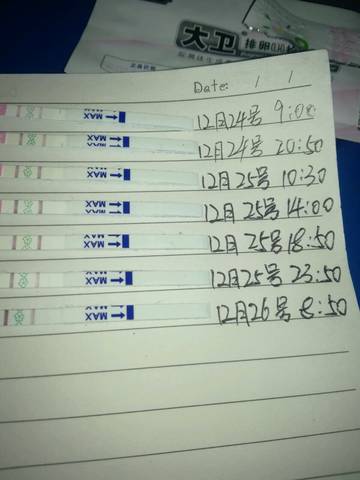 大卫 排卵
Date: / /
MAX 12月24号 9:00
MAX 12月24号 20:50
MAX 12月25号 10:30
MAX 12月25号 14:00
MAX 12月25号 18:50
MAX 12月25号 23:50
MAX 12月26号 8:50